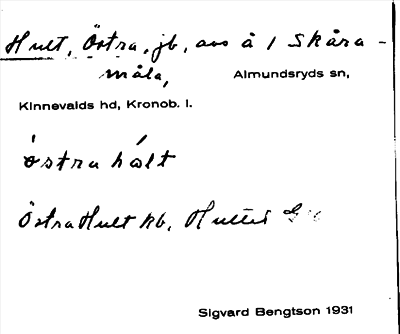 Hult, Östra, jb, avs å 1 Skåra-
måla, Almundsryds sn,
Kinnevalds hd, Kronob. l.
östra hólt
Östra Hult kb,
Sigvard Bengtson 1931